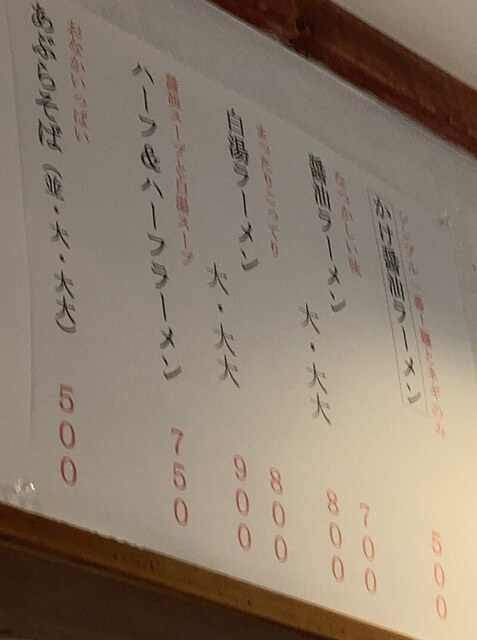 シンプル一番！麺とネギのみ
かけ醤油ラーメン 500
なつかしい味 700
醤油ラーメン 大・大大 800
まったりこってり 800
白湯ラーメン 大・大大 900
醤油スープと白湯スープ
ハーフ&ハーフラーメン 750
おなかいっぱい
あぶらそば（並・大・大大） 500